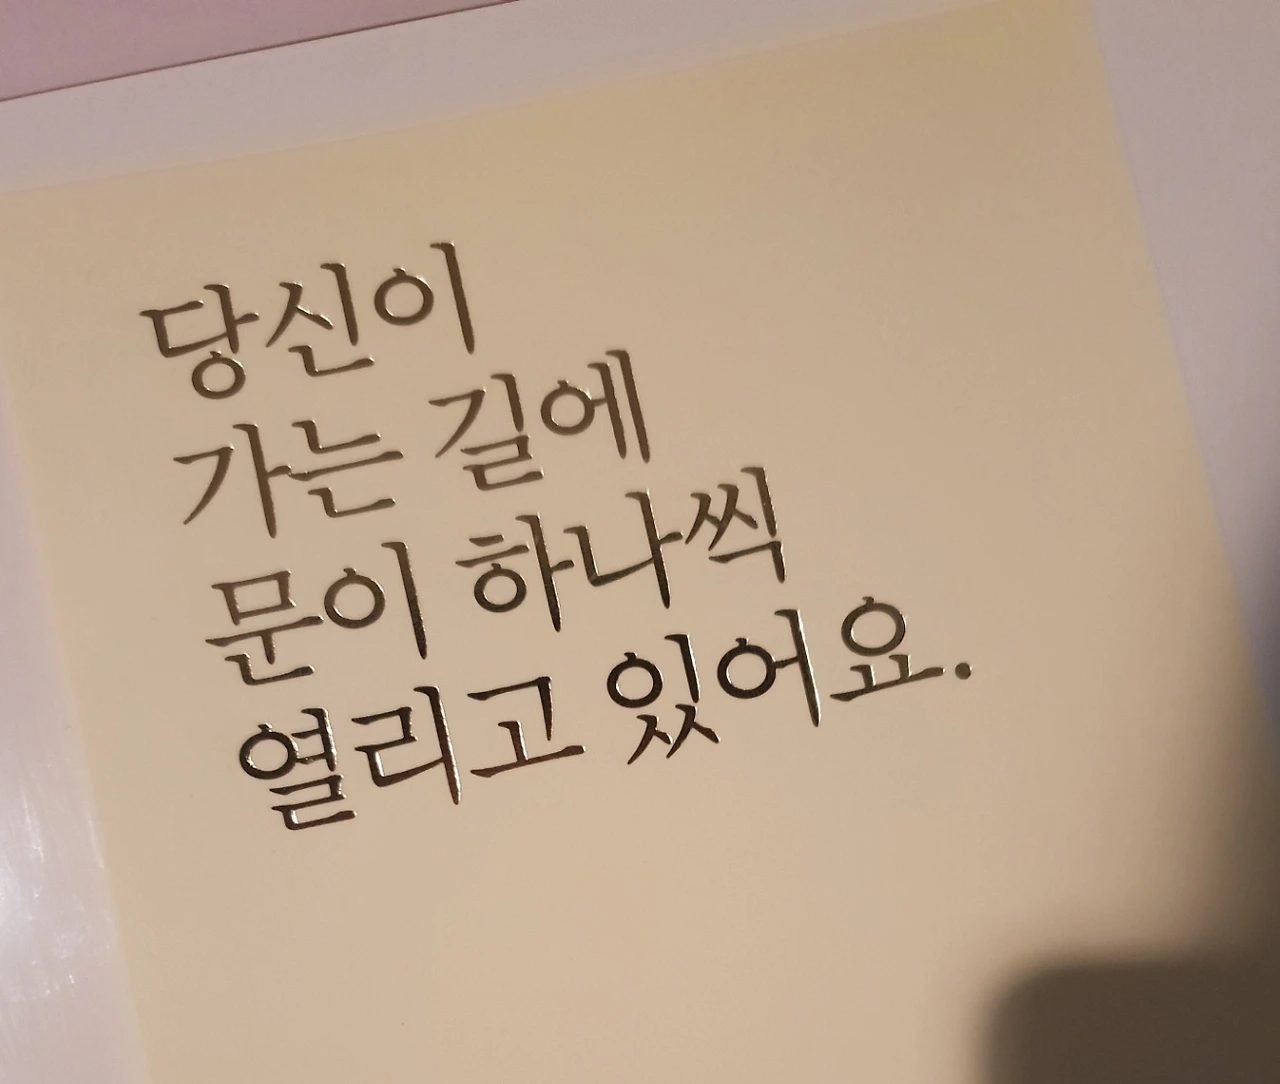 당신이
가는 길에
문이 하나씩
열리고 있어요.